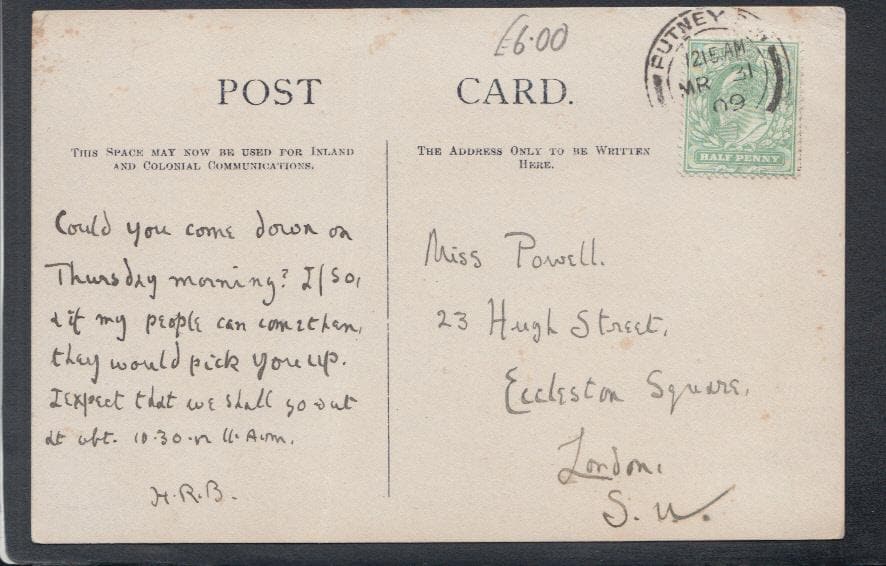 £6.00
POST CARD.
PUTNEY
1215 AM
MR 31
09
HALF PENNY
THIS SPACE MAY NOW BE USED FOR INLAND
AND COLONIAL COMMUNICATIONS.
THE ADDRESS ONLY TO BE WRITTEN
HERE.
Could you come down on
Thursday morning? If so,
& if my people can come then,
they would pick you up.
I expect that we shall go out
at abt. 10.30 or 11. A.m.
H.R.B.
Miss Powell.
23 Hugh Street,
Eccleston Square,
London,
S.W.